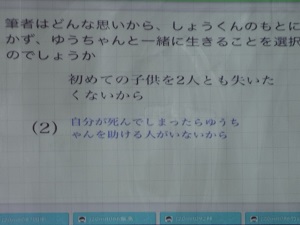 筆者はどんな思いから、しょうくんのもとに
かず、ゆうちゃんと一緒に生きることを選択
のでしょうか
初めての子供を2人とも失いた
くないから
(2) 自分が死んでしまったらゆうち
ゃんを助ける人がいないから